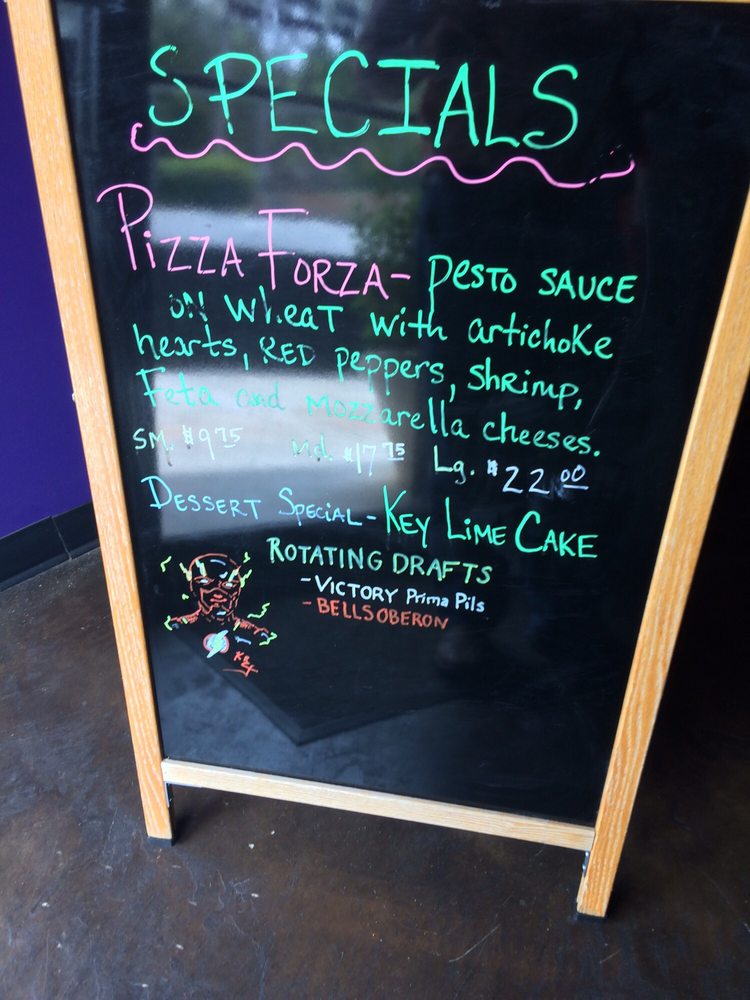 SPECIALS
PIZZA FORZA- PESTO SAUCE
ON WHEAT with artichoke
hearts, RED peppers, SHRIMP,
Feta and mozzarella cheeses.
SM. $9.75 Md. $17.75 Lg. $22.00
DESSERT SPECIAL- KEY LIME CAKE
ROTATING DRAFTS
-VICTORY Prima Pils
-BELLS OBERON